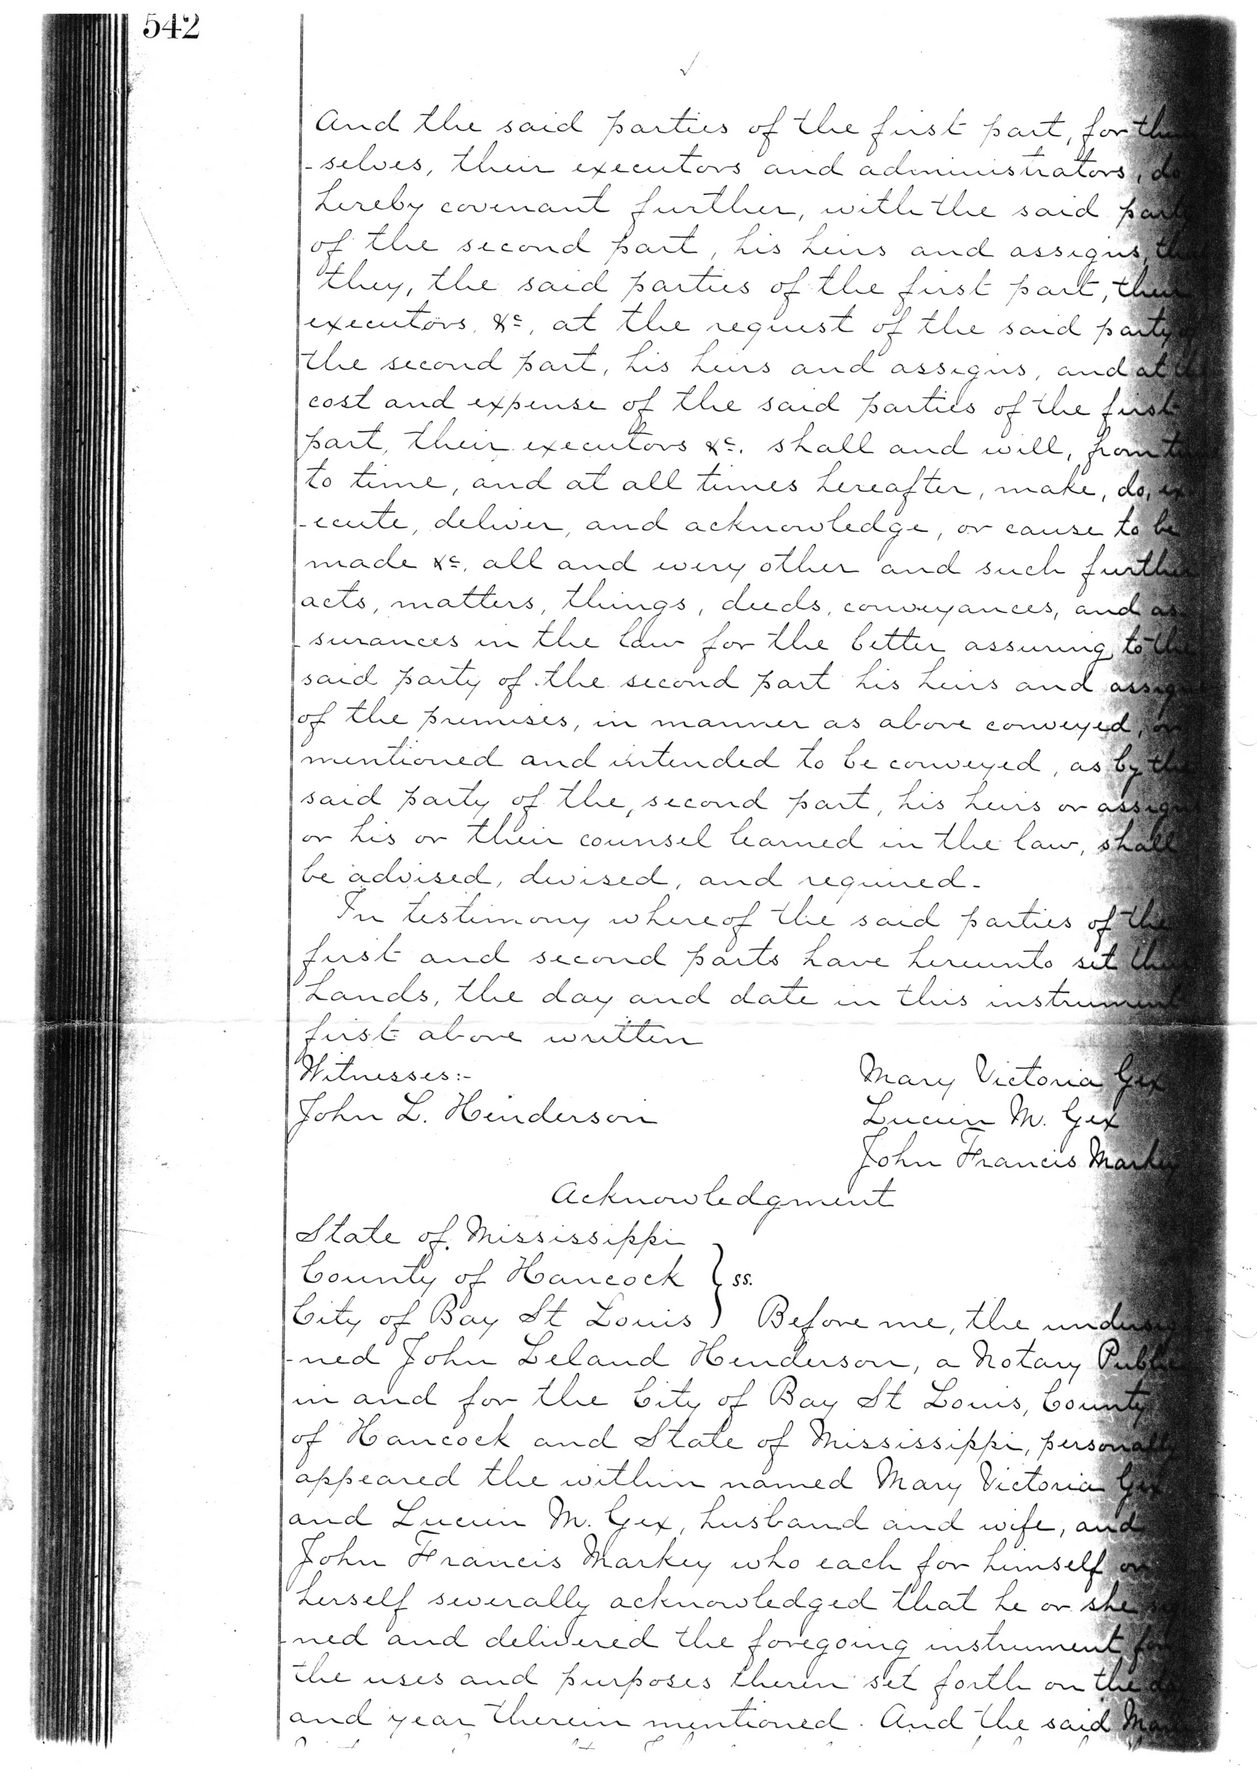 542
And the said parties of the first part, for them
-selves, their executors and administrators, do
hereby covenant further, with the said party
of the second part, his heirs and assigns, that
they, the said parties of the first part, their
executors, &c, at the request of the said party of
the second part, his heirs and assigns, and at the
cost and expense of the said parties of the first
part, their executors &c. shall and will, from time
to time, and at all times hereafter, make, do, ex
-ecute, deliver, and acknowledge, or cause to be
made &c, all and every other and such further
acts, matters, things, deeds, conveyances, and as
-surances in the law for the better assuring to the
said party of the second part his heirs and assigns
of the premises, in manner as above conveyed, or
mentioned and intended to be conveyed, as by the
said party of the second part, his heirs or assigns
or his or their counsel learned in the law, shall
be advised, devised, and required.
In testimony whereof the said parties of the
first and second parts have hereunto set their
hands, the day and date in this instrument
first above written
Witnesses:- Mary Victoria Gex
John L. Henderson Lucien M. Gex
John Francis Markey
Acknowledgment
State of Mississippi
County of Hancock } ss.
City of Bay St Louis Before me, the undersig
-ned John Leland Henderson, a Notary Public
in and for the City of Bay St Louis, County
of Hancock and State of Mississippi, personally
appeared the within named Mary Victoria Gex
and Lucien M. Gex, husband and wife, and
John Francis Markey who each for himself or
herself severally acknowledged that he or she sig
-ned and delivered the foregoing instrument for
the uses and purposes therein set forth on the day
and year therein mentioned. And the said Mary